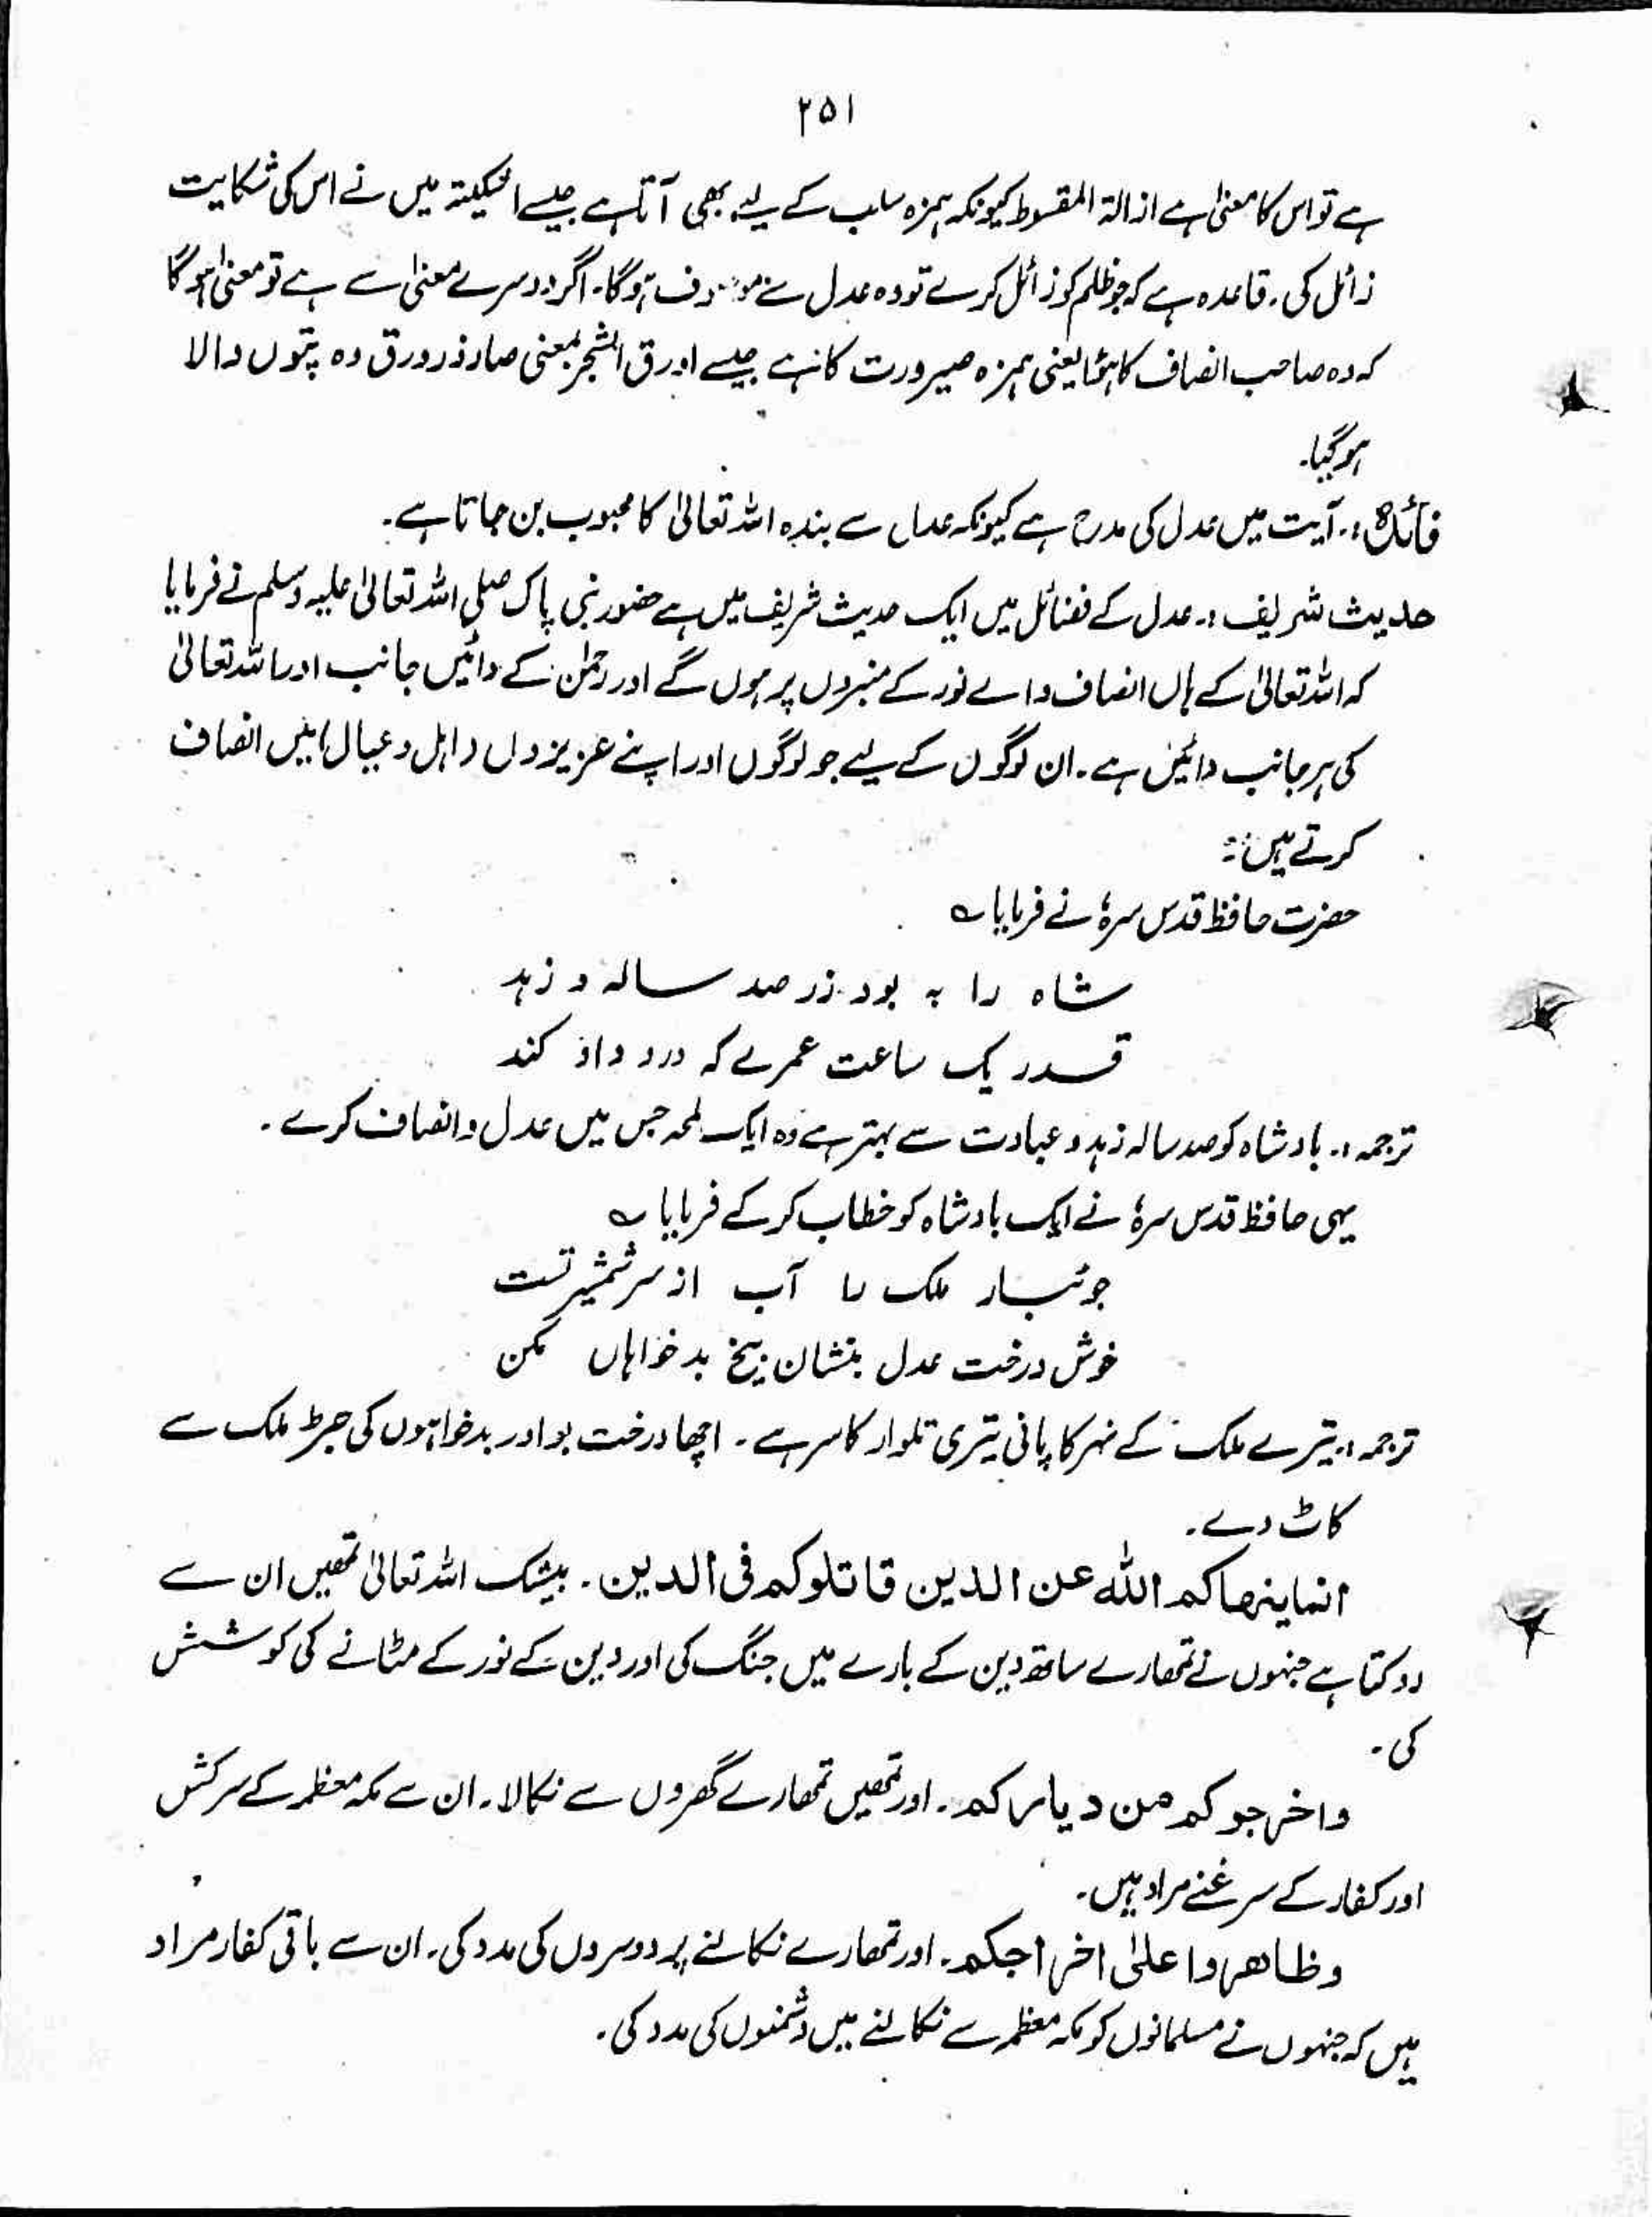 ۲۵۱
ہے تو اس کا معنیٰ ہے ازالۃ المقسوط کیونکہ ہمزہ سلب کے لیے بھی آتا ہے جیسے اشکیتہ میں نے اس کی شکایت
زائل کی۔ قاعدہ ہے کہ جو ظلم کو زائل کرے تو وہ عدل سے موصوف ہوگا۔ اگر دوسرے معنیٰ سے ہے تو معنیٰ ہوگا
کہ وہ صاحب انصاف کا ہوا یعنی ہمزہ صیرورت کا ہے جیسے اورق الشجر بمعنی صار ذوورق وہ پتوں والا
ہوگیا۔
فائدہ :۔ آیت میں عدل کی مدح ہے کیونکہ عدل سے بندہ اللہ تعالیٰ کا محبوب بن جاتا ہے۔
حدیث شریف :۔ عدل کے فضائل میں ایک حدیث شریف میں ہے حضور نبی پاک صلی اللہ تعالیٰ علیہ وسلم نے فرمایا
کہ اللہ تعالیٰ کے ہاں انصاف والے نور کے منبروں پر ہوں گے اور رحمٰن کے دائیں جانب اور اللہ تعالیٰ
کی ہر جانب دائیں ہے۔ ان لوگوں کے لیے جو لوگوں اور اپنے عزیزوں (اہل و عیال) میں انصاف
کرتے ہیں :
حضرت حافظ قدس سرہٗ نے فرمایا ؎
شاہ را بہ بود زر صد سالہ و زہد
قدر یک ساعت عمرے کہ درو داد کند
ترجمہ :۔ بادشاہ کو صد سالہ زہد و عبادت سے بہتر ہے وہ ایک لمحہ جس میں عدل و انصاف کرے۔
یہی حافظ قدس سرہٗ نے ایک بادشاہ کو خطاب کر کے فرمایا ؎
جوئبار ملک را آب از سر شمشیر تست
خوش درخت عدل بنشان بیخ بدخواہاں بکن
ترجمہ :۔ تیرے ملک کے نہر کا پانی تیری تلوار کا سر ہے۔ اچھا درخت بو اور بدخواہوں کی جڑ ملک سے
کاٹ دے۔
انما ینھاکم اللہ عن الذین قاتلوکم فی الدین۔ بیشک اللہ تعالیٰ تمھیں ان سے
روکتا ہے جنہوں نے تمھارے ساتھ دین کے بارے میں جنگ کی اور دین کے نور کے مٹانے کی کوشش
کی۔
واخرجوکم من دیارکم۔ اور تمھیں تمھارے گھروں سے نکالا۔ ان سے مکہ معظمہ کے سرکش
اور کفار کے سرغنے مراد ہیں۔
وظاھروا علیٰ اخراجکم۔ اور تمھارے نکالنے پر دوسروں کی مدد کی۔ ان سے باقی کفار مراد
ہیں کہ جنہوں نے مسلمانوں کو مکہ معظمہ سے نکالنے میں دشمنوں کی مدد کی۔